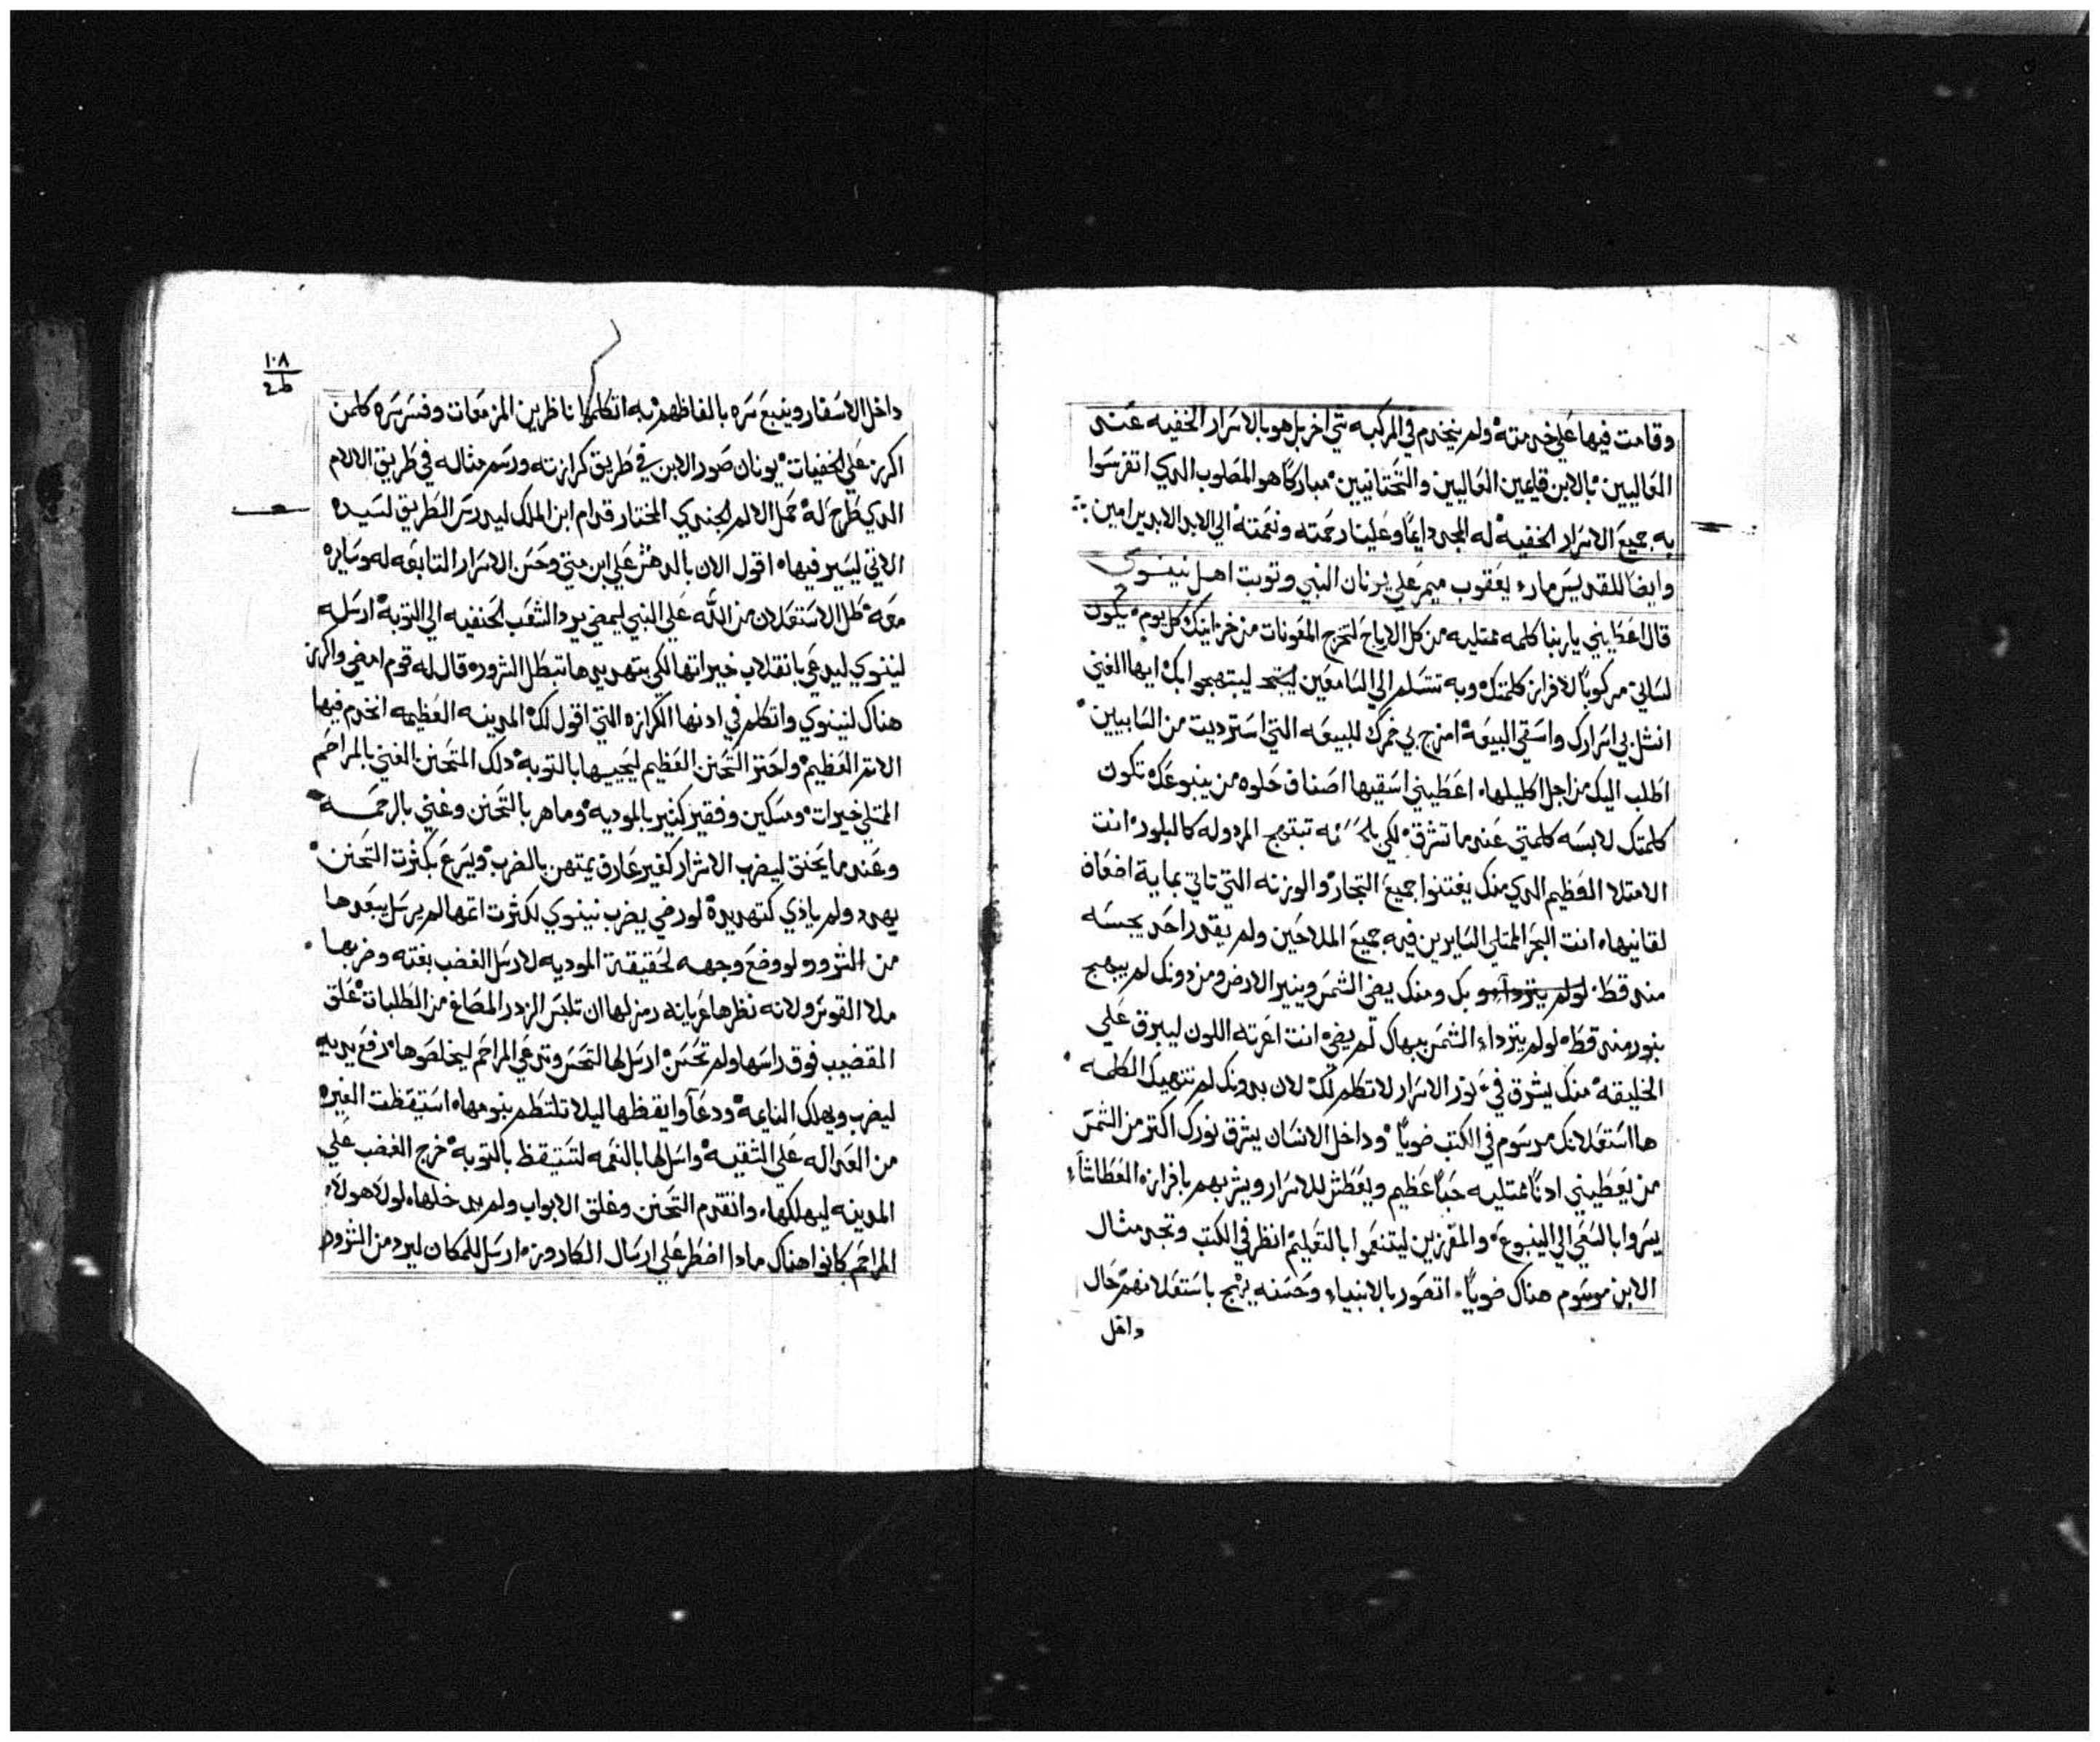 وقامت فيها علي خدمتة ولم ينخدم في المركبه شي اخر بل هو بالاسرار الخفيه عنـى
العاليين بالابن قايمين العاليين والتحتانيين مباركا هو المصلوب الدي اتفرسوا
به جميع الاسرار الخفية له المجد دايما وعلينا رحمته ونعمتة الي الابد الابدين امين
وايضا للقديس مارء يعقوب ميمر علي يونان النبي وتوبت اهـل نينـوى
قال اعطيني ياربنا كلمه ممتليه من كل الارباح لتخرج المعونات من خزاينك كل يوم يكون
لساني مركوبا لافراز كلمتك وبه تتسلم الي السامعين ليبتهجوا بك ايها الغني
انشل بي اسرارك واسقي البيعة امزج بي خمرك للبيعه التي استرديت من السابيين
اطلب اليك من اجل اكليلها اعطيني اسقيها اصناف حلوه من ينبوعك تكون
كلمتك لابسه كلمتي عندما تشرق لكي تبتهج المردوله كالبلور انت
الامتلا العظيم الدي منك يغتنوا جميع التجار والوزنه التي تاتي بماية اضعاف
لقانيها انت البحر الممتلي السايرين فيه جميع الملاحين ولم يقدر احد يحبسه
منه قط بك ومنك يضي الشمس وينير الارض ومن دونك لم يبهج
بنوره منه قط لو لم يتزداء الشمس ببهاك لم يضي انت اعرته اللون ليبرق علي
الخليقة منك يشرق في نور الاسرار لا تكلم لك لان بدونك لم تتهيك الكلمه
ها استعلانك مرسوم في الكتب ضويا وداخل الانسان يشرق نورك اكتر من الشمس
من يعطيني ادنا ممتليه حبا عظيم ويعطش للاسرار ويشربهم بافرازه العطاشاء
يسروا بالسعي الي الينبوع والمفرزين ليتنعموا بالتعليم انظر في الكتب وتجد مثال
الابن موسوم هناك ضويا اتصور بالانبياء وحسنه يزهج باستعلانهم حال
داخل
١٠٨
داخل الاسفار وينبع سره بالفاظهم به اتكلموا ناظرين المزمعات وفسر سره كلمن
اكرز علي الخفيات يونان صور الابن في طريق كرازته ورسم مثاله في طريق الالام
الدي طرح له حمل الالام الجندي المختار قدام ابن الملك ليدرس الطريق لسيده
الاتي ليسير فيها اقول الان بالدهش علي ابن متي وحسن الاسرار التابعه له وسايره
معه طل الاستعلان من الله علي النبي ليمضي يرد الشعب الحنفيه الي التوبة ارسله
لنينوي ليدعي بانقلاب خيراتها لكي بتهديدها تبطل الشرور قال له قوم امضي واكرز
هناك لنينوي واتكلم في ادنها الكرازه التي اقول لك المدينه العظيمه انخدم فيها
الاتم العظيم واحتز التحنن العظيم ليجيبها بالتوبة دلك المتحنن الغني بالمراحم
الممتلي خيرات ومسكين وفقير كثير بالموديه وماهر بالتحنن وغني بالرحمـه
وعندما يحنق ليضرب الاشرار كغير عارف يمتهن بالضرب ويسرع بكثرت التحنن
يهدد ولم ياذي كتهديدة لو رضي يضرب نينوي لكثرت اتمها لم يرسل يبعدها
من الشرور ولو وضع وجهه لحقيقة الموديه لارسل الغضب بغته وضربها
ملا القوس ولانه نظرها عريانه رمز لها ان تلبس الزرد المصاغ من الطلبات علق
القضيب فوق راسها ولم تحسن ارسل لها لتحس وتدعي المراحم ليخلصوها رفع يديه
ليضرب ويهلك النايمة ودعا وايقظها ليلا تلتطم بنومها استيقظت الغيره
من العداله علي الشقية واسل لها بالنعمه لتستيقظ بالتوبة خرج الغضب علي
المدينه ليهلكها واتقدم التحنن وغلق الابواب ولم يدخلها لولا هولاء
المراحم كانوا هناك مادا اضطر علي ارسال الكاروز ارسل للمكان ليرد من الشرور